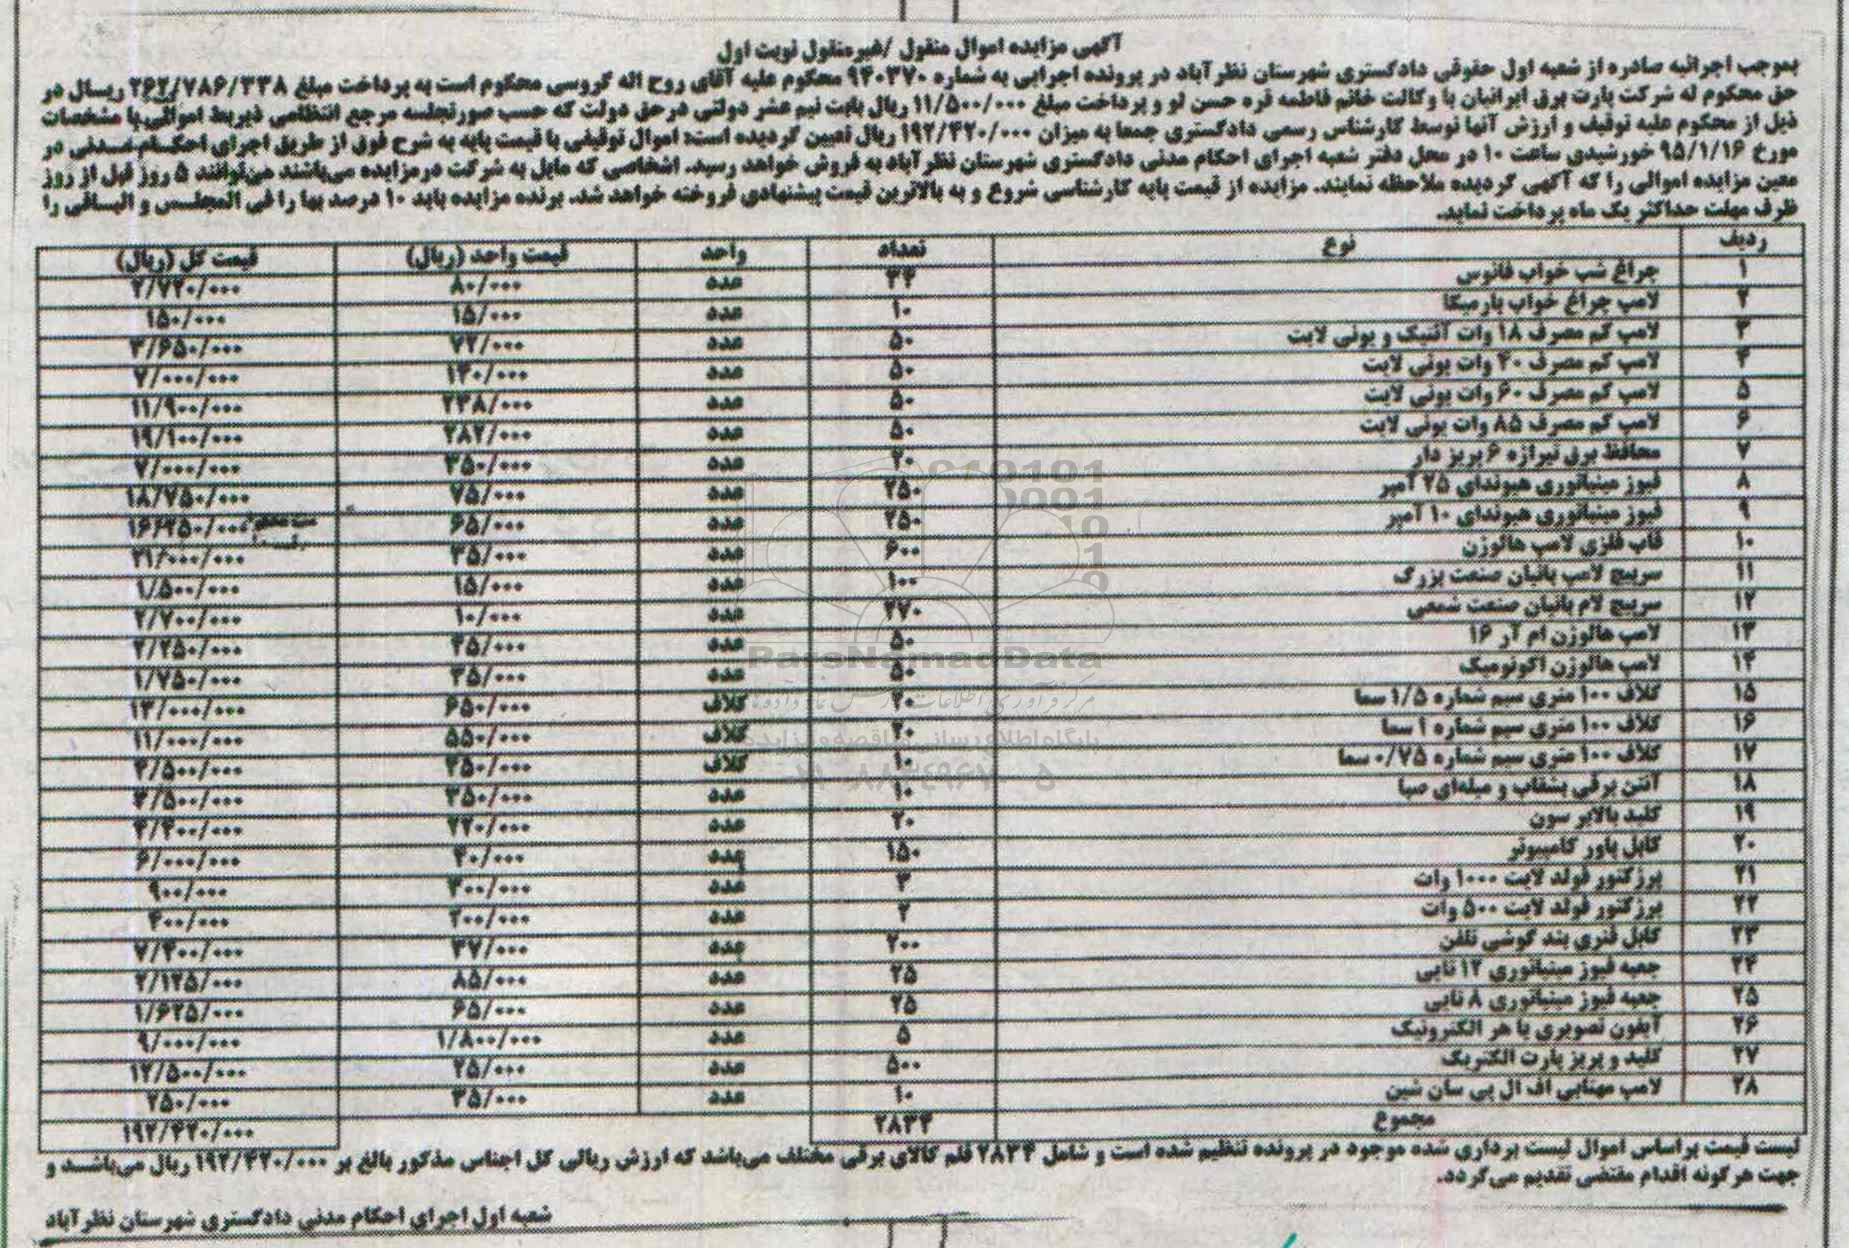 آگهی مزایده اموال منقول /غیرمنقول نوبت اول
بموجب اجرائیه صادره از شعبه اول حقوقی دادگستری شهرستان نظرآباد در پرونده اجرایی به شماره ۹۴۰۳۷۰ محکوم علیه آقای روح اله گروسی محکوم است به پرداخت مبلغ ۲۶۲/۷۸۶/۳۳۸ ریـال در
حق محکوم له شرکت پارت برق ایرانیان با وکالت خانم فاطمه قره حسن لو و پرداخت مبلغ ۱۱/۵۰۰/۰۰۰ ریال بابت نیم عشر دولتی درحق دولت که حسب صورتجلسه مرجع انتظامی ذیربط اموالی با مشخصات
ذیل از محکوم علیه توقیف و ارزش آنها توسط کارشناس رسمی دادگستری جمعا به میزان ۱۹۲/۴۲۰/۰۰۰ ریال تعیین گردیده است: اموال توقیفی با قیمت پایه به شرح فوق از طریق اجرای احکـام مـدنی در
مورخ ۹۵/۱/۱۶ خورشیدی ساعت ۱۰ در محل دفتر شعبه اجرای احکام مدنی دادگستری شهرستان نظرآباد به فروش خواهد رسید. اشخاصی که مایل به شرکت درمزایده می‌باشند می‌توانند ۵ روز قبل از روز
معین مزایده اموالی را که آگهی گردیده ملاحظه نمایند. مزایده از قیمت پایه کارشناسی شروع و به بالاترین قیمت پیشنهادی فروخته خواهد شد. برنده مزایده باید ۱۰ درصد بها را فی المجلـس و البـاقی را
ظرف مهلت حداکثر یک ماه پرداخت نماید.
ردیف نوع تعداد واحد قیمت واحد (ریال) قیمت کل (ریال)
۱ چراغ شب خواب فانوس ۳۴ عدد ۸۰/۰۰۰ ۲/۷۲۰/۰۰۰
۲ لامپ چراغ خواب پارمیکا ۱۰ عدد ۱۵/۰۰۰ ۱۵۰/۰۰۰
۳ لامپ کم مصرف ۱۸ وات آنتیک و یونی لایت ۵۰ عدد ۷۳/۰۰۰ ۳/۶۵۰/۰۰۰
۴ لامپ کم مصرف ۴۰ وات یونی لایت ۵۰ عدد ۱۴۰/۰۰۰ ۷/۰۰۰/۰۰۰
۵ لامپ کم مصرف ۶۰ وات یونی لایت ۵۰ عدد ۲۳۸/۰۰۰ ۱۱/۹۰۰/۰۰۰
۶ لامپ کم مصرف ۸۵ وات یونی لایت ۵۰ عدد ۳۸۲/۰۰۰ ۱۹/۱۰۰/۰۰۰
۷ محافظ برق تیراژه ۶ پریز دار ۲۰ عدد ۳۵۰/۰۰۰ ۷/۰۰۰/۰۰۰
۸ فیوز مینیاتوری هیوندای ۲۵ آمپر ۲۵۰ عدد ۷۵/۰۰۰ ۱۸/۷۵۰/۰۰۰
۹ فیوز مینیاتوری هیوندای ۱۰ آمپر ۲۵۰ عدد ۶۵/۰۰۰ ۱۶/۲۵۰/۰۰۰
۱۰ قاب فلزی لامپ هالوژن ۶۰۰ عدد ۳۵/۰۰۰ ۲۱/۰۰۰/۰۰۰
۱۱ سرپیچ لامپ بانیان صنعت بزرگ ۱۰۰ عدد ۱۵/۰۰۰ ۱/۵۰۰/۰۰۰
۱۲ سرپیچ لام بانیان صنعت شمعی ۲۷۰ عدد ۱۰/۰۰۰ ۲/۷۰۰/۰۰۰
۱۳ لامپ هالوژن ام آر ۱۶ ۵۰ عدد ۴۵/۰۰۰ ۲/۲۵۰/۰۰۰
۱۴ لامپ هالوژن اکونومیک ۵۰ عدد ۳۵/۰۰۰ ۱/۷۵۰/۰۰۰
۱۵ کلاف ۱۰۰ متری سیم شماره ۱/۵ سما ۲۰ کلاف ۶۵۰/۰۰۰ ۱۳/۰۰۰/۰۰۰
۱۶ کلاف ۱۰۰ متری سیم شماره ۱ سما ۲۰ کلاف ۵۵۰/۰۰۰ ۱۱/۰۰۰/۰۰۰
۱۷ کلاف ۱۰۰ متری سیم شماره ۰/۷۵ سما ۱۰ کلاف ۴۵۰/۰۰۰ ۴/۵۰۰/۰۰۰
۱۸ آنتن برقی بشقاب و میله‌ای صبا ۱۰ عدد ۳۵۰/۰۰۰ ۳/۵۰۰/۰۰۰
۱۹ کلید بالابر سون ۲۰ عدد ۲۲۰/۰۰۰ ۴/۴۰۰/۰۰۰
۲۰ کابل پاور کامپیوتر ۱۵۰ عدد ۴۰/۰۰۰ ۶/۰۰۰/۰۰۰
۲۱ پرژکتور فولد لایت ۱۰۰۰ وات ۳ عدد ۳۰۰/۰۰۰ ۹۰۰/۰۰۰
۲۲ پرژکتور فولد لایت ۵۰۰ وات ۲ عدد ۲۰۰/۰۰۰ ۴۰۰/۰۰۰
۲۳ کابل فنری بند گوشی تلفن ۲۰۰ عدد ۳۷/۰۰۰ ۷/۴۰۰/۰۰۰
۲۴ جعبه فیوز مینیاتوری ۱۲ تایی ۲۵ عدد ۸۵/۰۰۰ ۲/۱۲۵/۰۰۰
۲۵ جعبه فیوز مینیاتوری ۸ تایی ۲۵ عدد ۶۵/۰۰۰ ۱/۶۲۵/۰۰۰
۲۶ آیفون تصویری با هر الکترونیک ۵ عدد ۱/۸۰۰/۰۰۰ ۹/۰۰۰/۰۰۰
۲۷ کلید و پریز پارت الکتریک ۵۰۰ عدد ۲۵/۰۰۰ ۱۲/۵۰۰/۰۰۰
۲۸ لامپ مهتابی اف ال پی سان شین ۱۰ عدد ۳۵/۰۰۰ ۳۵۰/۰۰۰
مجموع ۲۸۳۴ ۱۹۲/۴۲۰/۰۰۰
لیست قیمت براساس اموال لیست برداری شده موجود در پرونده تنظیم شده است و شامل ۲۸۳۴ قلم کالای برقی مختلف می‌باشد که ارزش ریالی کل اجناس مذکور بالغ بر ۱۹۲/۴۲۰/۰۰۰ ریال می‌باشـد و
جهت هرگونه اقدام مقتضی تقدیم می‌گردد.
شعبه اول اجرای احکام مدنی دادگستری شهرستان نظرآباد
ParsNamadData